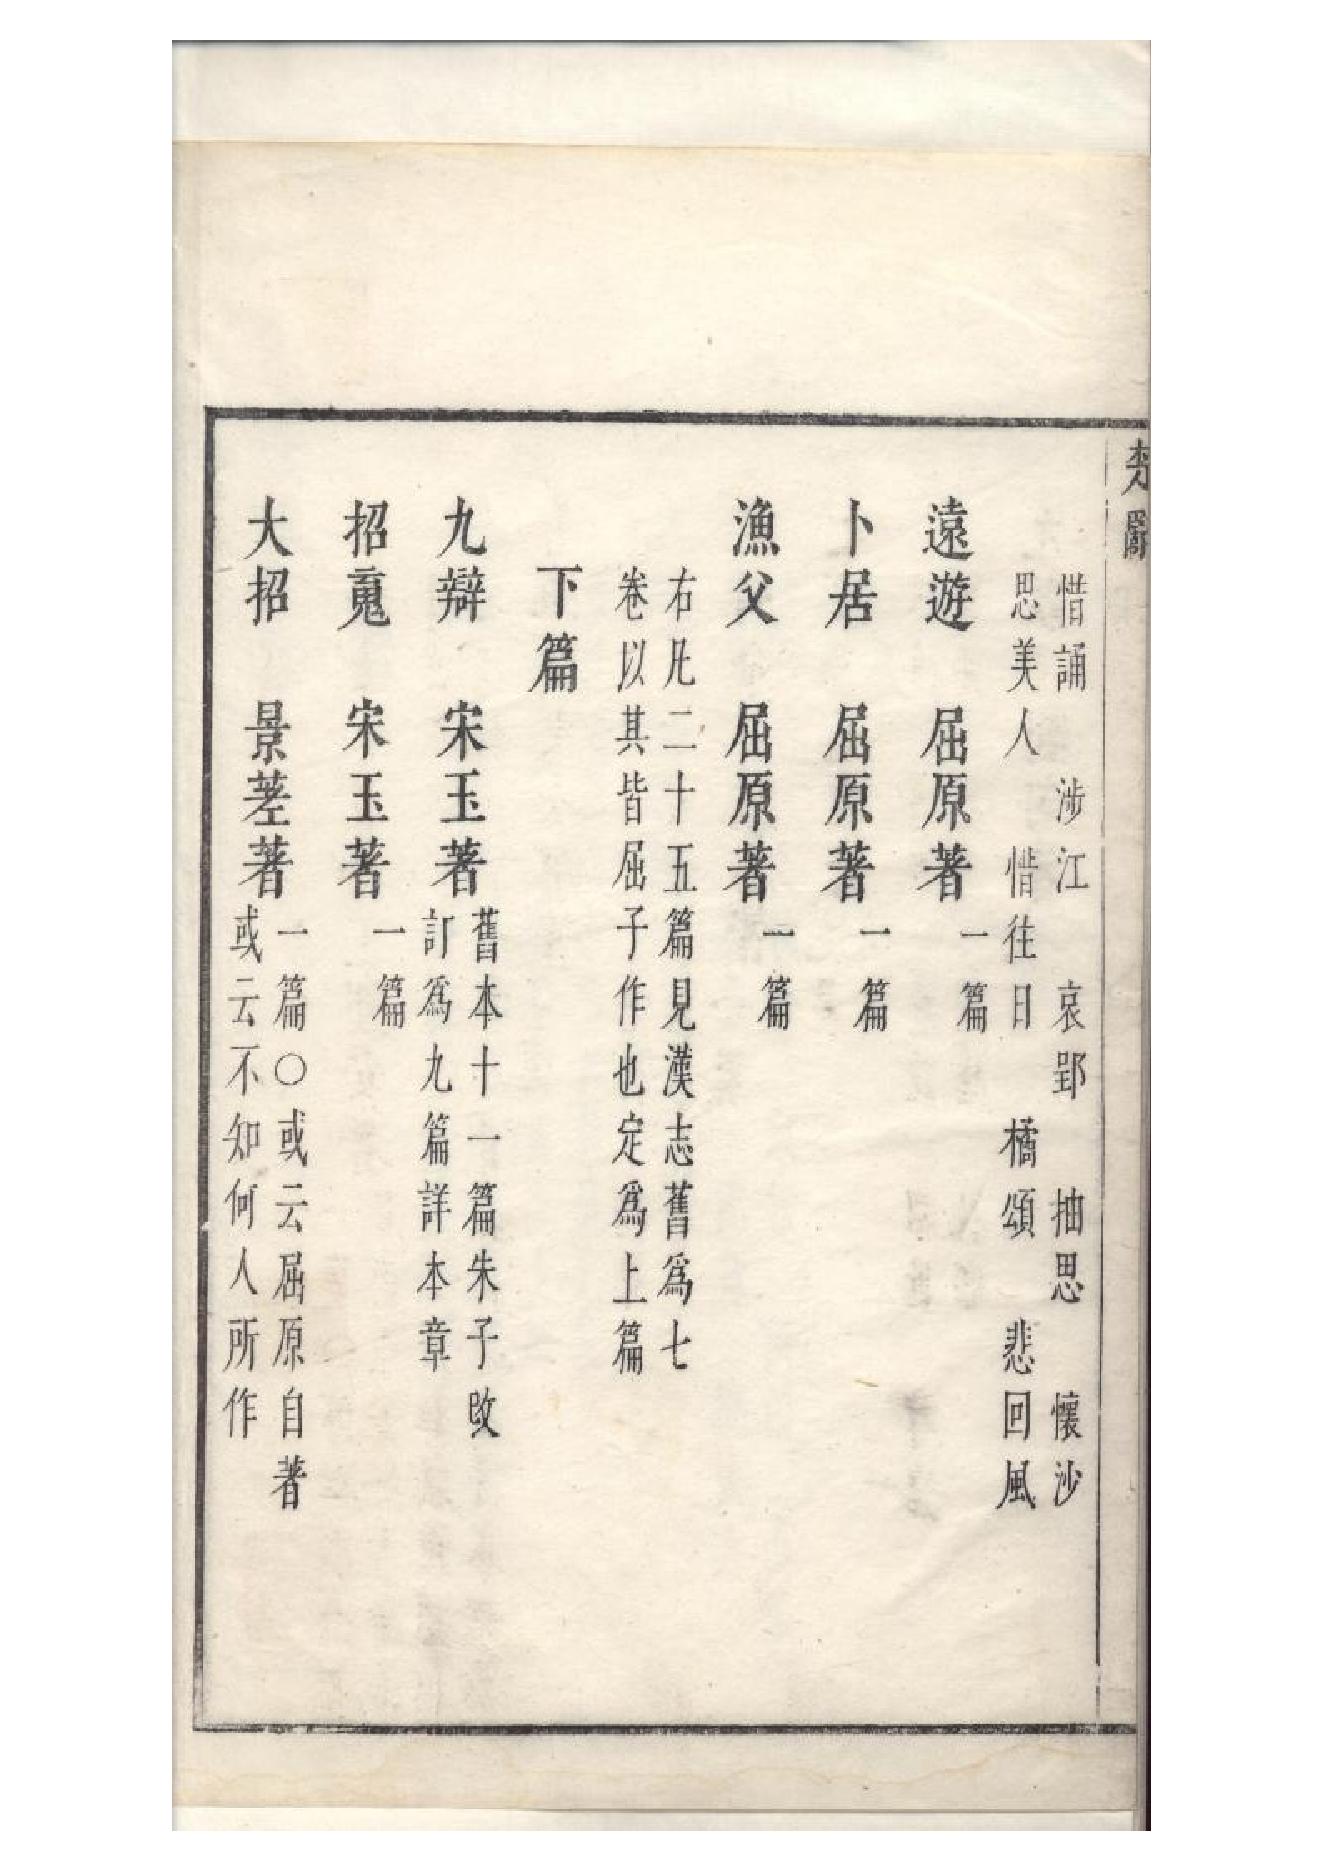 楚辭
惜誦　涉江　哀郢　抽思　懷沙
思美人　惜往日　橘頌　悲回風
遠遊　屈原著　一篇
卜居　屈原著　一篇
漁父　屈原著　一篇
右凡二十五篇見漢志舊爲七
卷以其皆屈子作也定爲上篇
下篇
九辯　宋玉著　舊本十一篇朱子改
訂爲九篇詳本章
招䰟　宋玉著　一篇
大招　景差著　一篇○或云屈原自著
或云不知何人所作